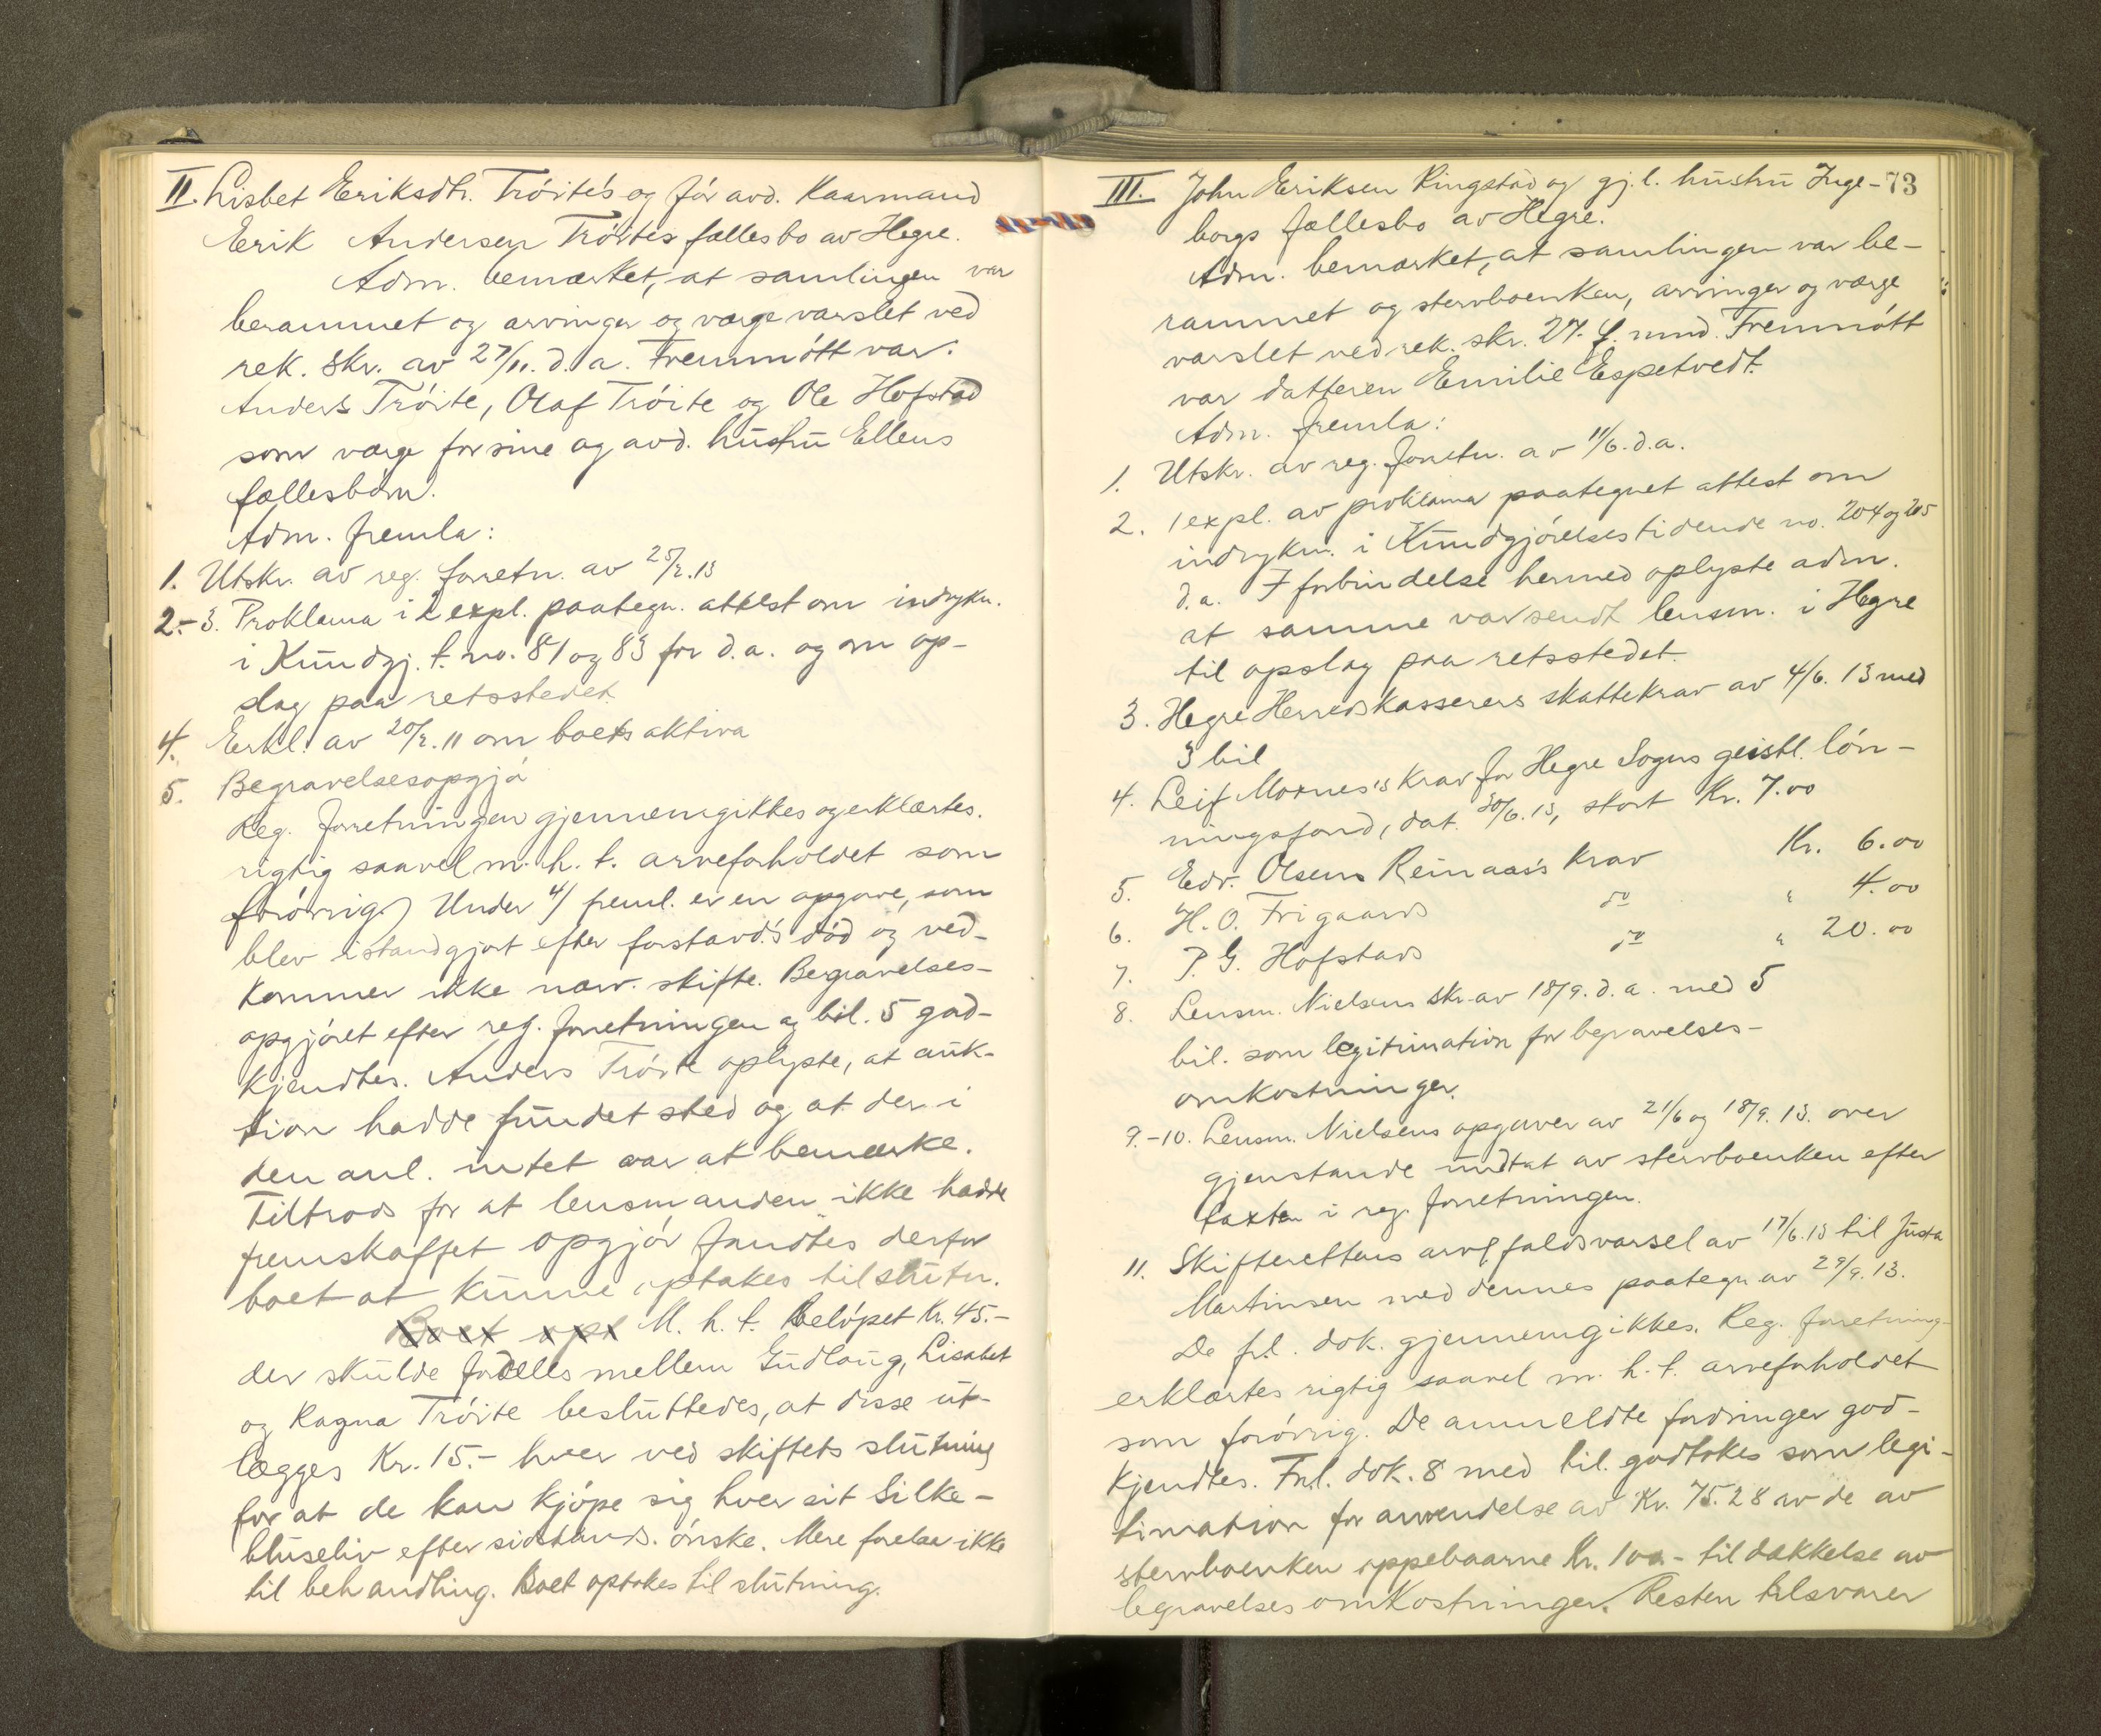 II. Lisbet Eriksdtr. Tröite's og för avd. Kaarmand
Erik Andersen Tröites fællesbo av Hegre.
Adm. bemærket, at samlingen var
berammet og arvinger og værge varslet ved
rek. skr. av 27/11. d. a. Fremmött var.
Anders Tröite, Olaf Tröite og Ole Hofstad
som værge for sine og avd. hustru Ellens
fællesbarn.
Adm. fremla:
1. Utskr. av reg. forretn. av 25/2. 13
2.-3. Proklama i 2 expl. paategn. attest om indrykn.
i Kundgj. t. no. 81 og 83 for d. a. og om op-
slag paa retsstedet.
4. Erkl. av 20/2. 11 om boets aktiva
5. Begravelsesopgjö
Reg. forretningen gjennemgikkes og erklærtes.
rigtig saavel m. h. t. arveforholdet som
forövrig. Under 4/ freml. er en opgave, som
blev istandgjort efter førstavd.'s död og ved-
kommer ikke nærv. skifte. Begravelses-
opgjöret efter reg. forretningen og bil. 5 god-
kjendtes. Anders Tröite oplyste, at auk-
tion hadde fundet sted og at der i
den anl. intet var at bemærke.
Tiltrods for at lensmanden ikke hadde
fremskaffet opgjör fandtes derfor
boet at kunne optakes til slutn.
Boet opt M. h. t. Belöpet Kr. 45.-
der skulde fordeles mellem Gudlaug, Lisabet
og Ragna Tröite besluttedes, at disse ut-
lægges Kr. 15.- hver ved skiftets slutning
for at de kan kjöpe sig hver sit Silke-
bluseliv efter sidstavds. önske. Mere forelaa ikke
til behandling. Boet optokes til slutning.
III. John Eriksen Ringstad og gj. l. hustru Inge- 73
borgs fællesbo av Hegre.
Adm. bemærket, at samlingen var be-
rammet og stervboenken, arvinger og værge
varslet ved rek. skr. 27. f. mnd. Fremmött
var datteren Emilie Espetvedt.
Adm. fremla:
1. Utskr. av reg. forretn. av 11/6. d. a.
2. 1 expl. av proklama paategnet attest om
indrykn. i Kundgjörelsestidende no. 204 og 205
d. a. I forbindelse hermed oplyste adm.
at samme var sendt lensm. i Hegre
til opslag paa retsstedet.
3. Hegre Herredskasserers skattekrav av 4/6. 13 med
3 bil
4. Leif Moxnes's krav for Hegre Sogns geistl. lön-
ningsfond, dat. 30/6. 13, stort Kr. 7.00
5. Edv. Olsens Reinaas's Krav Kr. 6.00
6. H. O. Frigaards do " 4.00
7. P. G. Hofstads do " 20.00
8. Lensm. Nielsens skr. av 18/9. d. a. med 5
bil. som legitimation for begravelses-
omkostninger.
9.-10. Lensm. Nielsens opgaver av 21/6 og 18/9. 13. over
gjenstande undtat av stervboenken efter
taxten i reg. forretningen.
11. Skifterettens arvefaldsvarsel av 17/6. 13 til Justa
Martinsen med dennes paategn. av 29/9. 13.
De frl. dok. gjennemgikkes. Reg. forretning-
erklærtes rigtig saavel m. h. t. arveforholdet
som forövrig. De anmeldte fordringer god-
kjendtes. Frl. dok. 8 med bil. godtokes som legi-
timation for anvendelse av Kr. 75.28 av de av
stervboenken oppebaarne Kr. 100.- til dækkelse av
begravelsesomkostninger. Resten tilsvarer